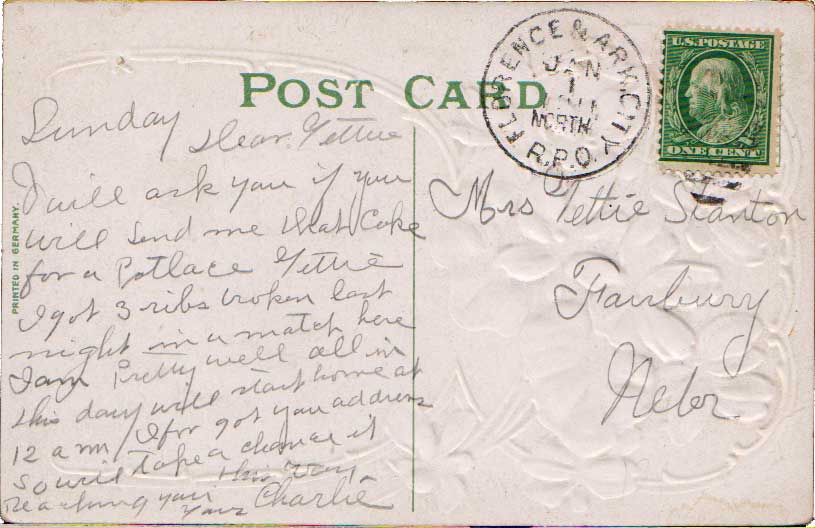 POST CARD
FLORENCE & ARK. CITY
JAN
1
NORTH
R.P.O.
U.S. POSTAGE
ONE CENT
PRINTED IN GERMANY.
Sunday Dear Tettie
I will ask you if you
will send me that Cake
for a Potlace Tettie
I got 3 ribs broken last
night in a match here
I am Pretty well all in
this day will start home at
12 a m I for got you address
so will take a chance it
reaching you this way
yours Charlie
Mrs Tettie Stanton
Fairbury
Nebr.